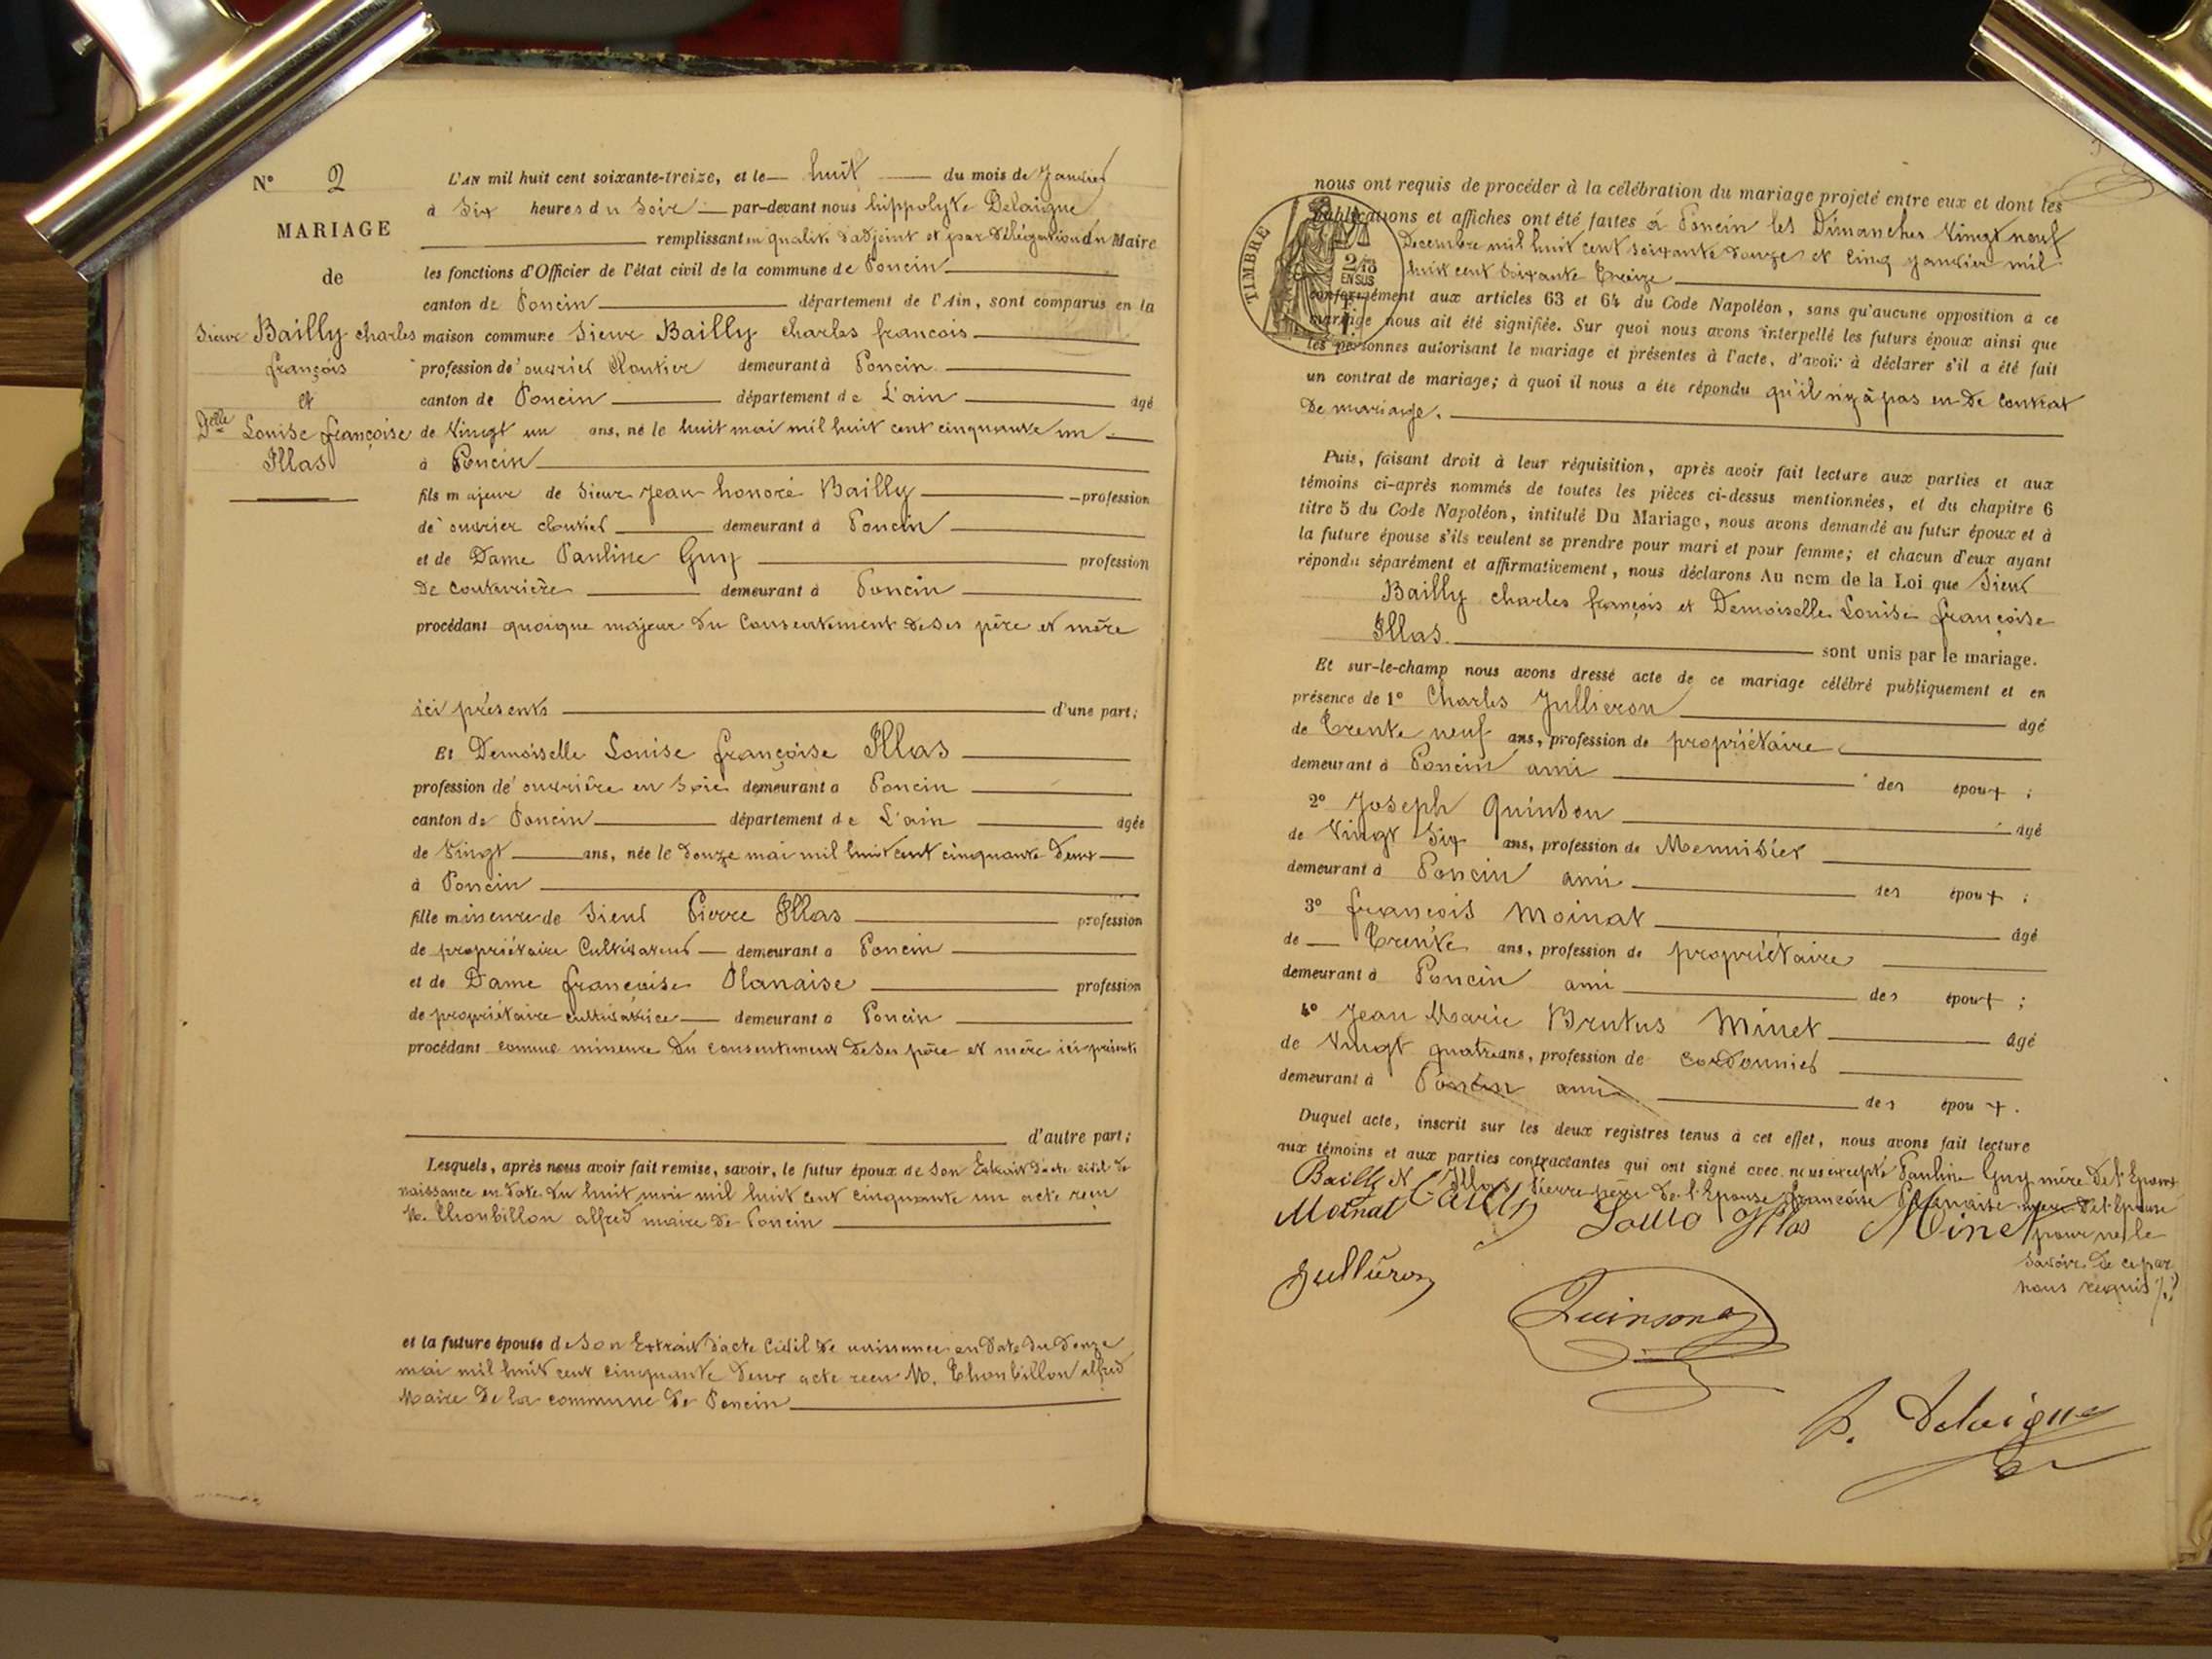 N° 2
MARIAGE
de
Sieur Bailly charles
françois
et
Delle Louise françoise
Illas
L'AN mil huit cent soixante-treize, et le huit du mois de Janvier
à Six heures du Soir par-devant nous hippolyte Delaigue
remplissant en qualité d'adjoint et par délégation du Maire
les fonctions d'Officier de l'état civil de la commune de Poncin
canton de Poncin département de l'Ain, sont comparus en la
maison commune Sieur Bailly charles francois
profession de ouvrier Cloutier demeurant à Poncin
canton de Poncin département de L'ain âgé
de Vingt un ans, né le huit mai mil huit cent cinquante un
à Poncin
fils majeur de Sieur Jean honoré Bailly profession
de ouvrier cloutier demeurant à Poncin
et de Dame Pauline Guy profession
De Couturière demeurant à Poncin
procédant quoique majeur du Consentement de Ses père et mère
ici présents d'une part;
Et Demoiselle Louise françoise Illas
profession de ouvrière en Soie demeurant à Poncin
canton de Poncin département de L'ain âgée
de Vingt ans, née le douze mai mil huit cent cinquante deux
à Poncin
fille mineure de Sieur Pierre Illas profession
de propriétaire Cultivateur demeurant à Poncin
et de Dame françoise Planaise profession
de propriétaire cultivatrice demeurant à Poncin
procédant comme mineure du consentement de Ses père et mère ici présents
d'autre part;
Lesquels, après nous avoir fait remise, savoir, le futur époux de Son Extrait d'acte civil de
naissance en date du huit mai mil huit cent cinquante un acte reçu
M. Thoubillon alfred maire de Poncin
et la future épouse de Son Extrait d'acte Civil de naissance en date du douze
mai mil huit cent cinquante deux acte reçu M. Thoubillon alfred
Maire de la commune de Poncin
nous ont requis de procéder à la célébration du mariage projeté entre eux et dont les
publications et affiches ont été faites à Poncin les Dimanches Vingt neuf
Decembre mil huit cent soixante douze et Cinq janvier mil
huit cent Soixante Treize
TIMBRE
2/10
EN SUS
conformément aux articles 63 et 64 du Code Napoléon, sans qu'aucune opposition à ce
mariage nous ait été signifiée. Sur quoi nous avons interpellé les futurs époux ainsi que
les personnes autorisant le mariage et présentes à l'acte, d'avoir à déclarer s'il a été fait
un contrat de mariage; à quoi il nous a été répondu qu'il n'y à pas eu De Contrat
De mariage.
Puis, faisant droit à leur réquisition, après avoir fait lecture aux parties et aux
témoins ci-après nommés de toutes les pièces ci-dessus mentionnées, et du chapitre 6
titre 5 du Code Napoléon, intitulé Du Mariage, nous avons demandé au futur époux et à
la future épouse s'ils veulent se prendre pour mari et pour femme; et chacun d'eux ayant
répondu séparément et affirmativement, nous déclarons Au nom de la Loi que Sieur
Bailly charles françois et Demoiselle Louise françoise
Illas. sont unis par le mariage.
Et sur-le-champ nous avons dressé acte de ce mariage célébré publiquement et en
présence de 1° Charles Jullieron âgé
de Trente neuf ans, profession de propriétaire
demeurant à Poncin ami des époux ;
2° Joseph Quinson âgé
de Vingt Six ans, profession de Menuisier
demeurant à Poncin ami des époux ;
3° françois Moinat âgé
de Trente ans, profession de propriétaire
demeurant à Poncin ami des époux ;
4° Jean Marie Brutus Minet âgé
de Vingt quatre ans, profession de Cordonnier
demeurant à Poncin ami des époux .
Duquel acte, inscrit sur les deux registres tenus à cet effet, nous avons fait lecture
aux témoins et aux parties contractantes qui ont signé avec nous excepté Pauline Guy mère de l'Epoux
Bailly et Illas Pierre père de l'Epouse françoise Planaise mère de l'Epouse
pour ne le
savoir de ce par
nous requis
Moinat Bailly Louise Illas Minet
Jullieron
Quinson
h. Delaigue